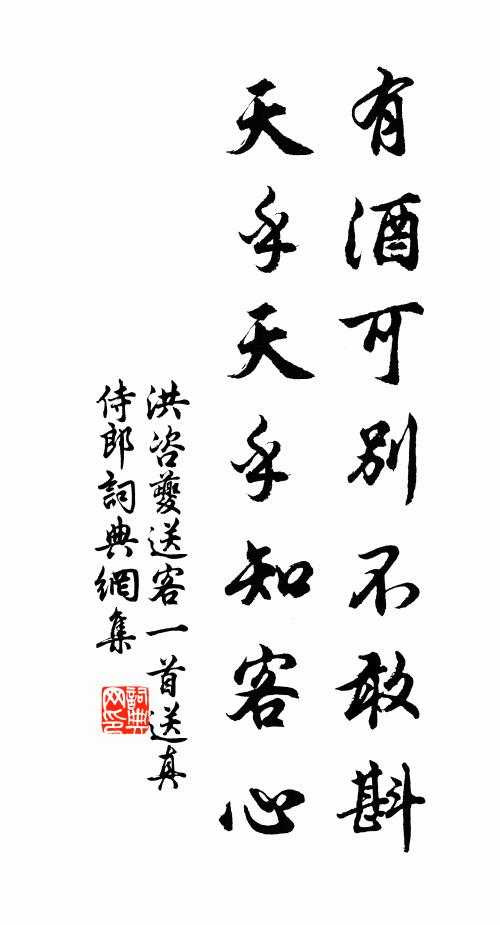 有酒可別不敢斟
天乎天乎知客心
洪咨夔送客一首送真
侍郎詞典網集
詞典网印